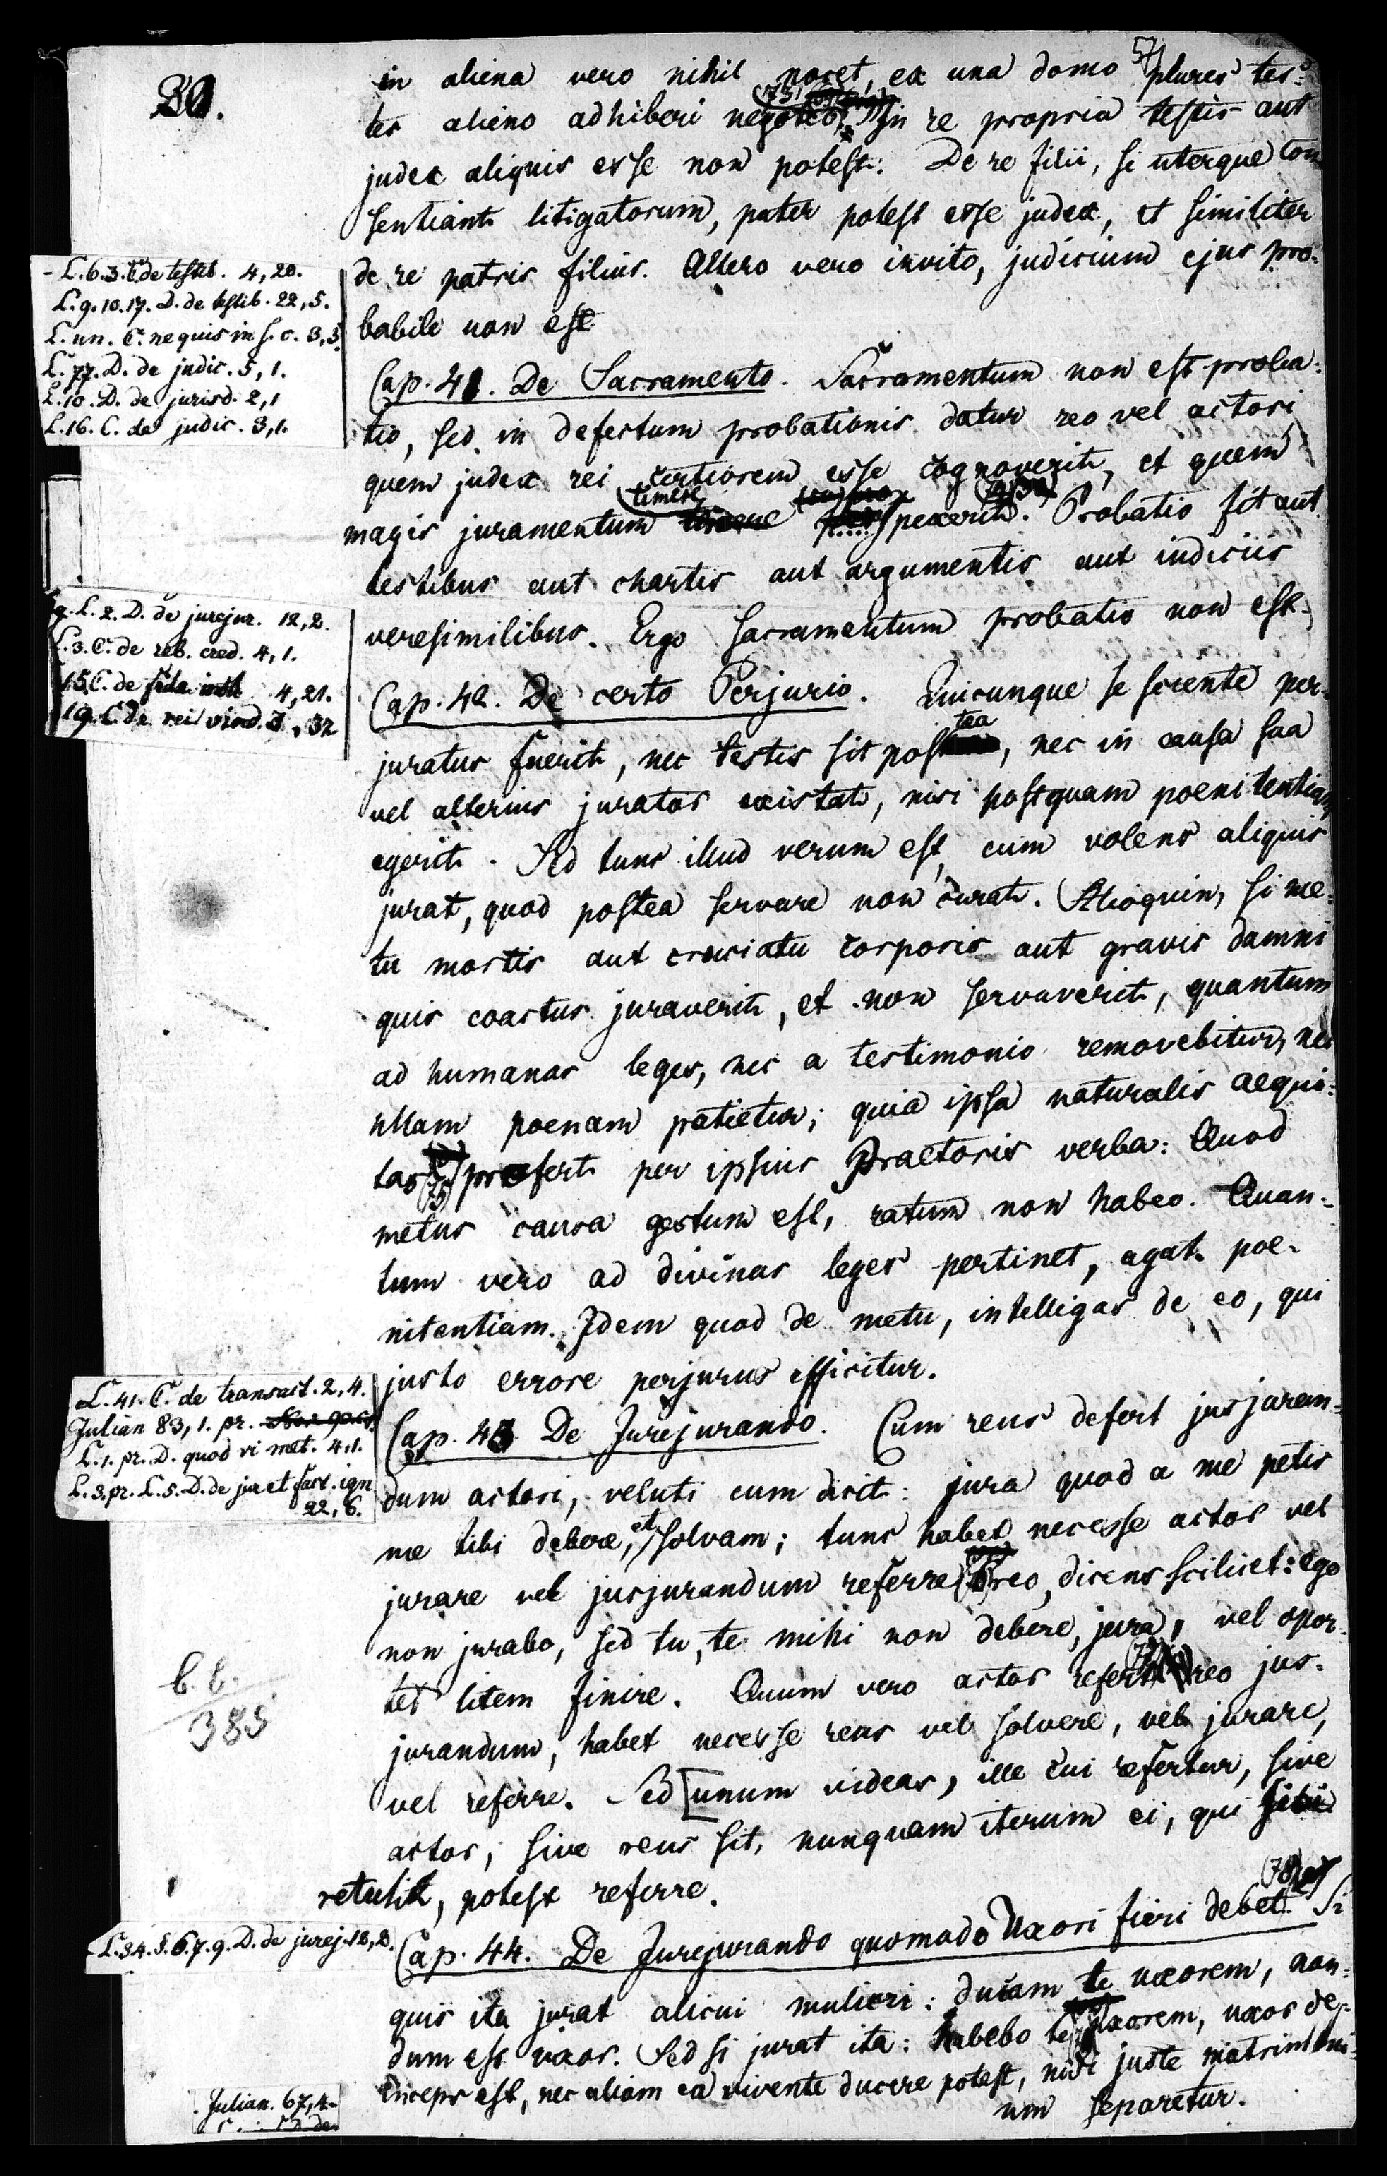 30.
57
in aliena vero nihil nocet, ex una domo plures tes-
tes alieno adhiberi negotio. In re propria testis aut
judex aliquis esse non potest. De re filii, si uterque con-
sentiant litigatorum, pater potest esse judex, et similiter
de re patris filius. Altero vero invito, judicium ejus pro-
babile non est
Cap. 41. De Sacramento. Sacramentum non est proba-
tio, sed in defectum probationis datur reo vel actori
quem judex rei certiorem esse cognoverit, et quem
magis juramentum timere perspexerit. Probatio fit aut
testibus aut chartis aut argumentis aut indiciis
verisimilibus. Ergo sacramentum probatio non est.
Cap. 42. De certo Perjurio. Quicunque se sciente per-
juratus fuerit, nec testis sit postea, nec in causa sua
vel alterius jurator existat, nisi postquam poenitentiam
egerit. Sed tunc illud verum est, cum volens aliquis
jurat, quod postea servare non curat. Alioquin, si me-
tu mortis aut cruciatu corporis aut gravis damni
quis coactus juraverit, et non servaverit, quantum
ad humanas leges, nec a testimonio removebitur, nec
ullam poenam patietur; quia ipsa naturalis aequi-
tas profert per ipsius Praetoris verba: Quod
metus causa gestum est, ratum non habeo. Quan-
tum vero ad divinas leges pertinet, agat poe-
nitentiam. Idem quod de metu, intelligas de eo, qui
justo errore perjurus efficitur.
Cap. 43 De Jurejurando. Cum reus defert jusjuran-
dum actori, veluti cum dicit: jura quod a me petis
me tibi debere, et solvam; tunc habet necesse actor vel
jurare vel jusjurandum referre reo, dicens scilicet: ego
non jurabo, sed tu, te mihi non debere, jura, vel opor-
tet litem finire. Quum vero actor refert reo jus-
jurandum, habet necesse reus vel solvere, vel jurare,
vel referre. Sed [unum videas, ille cui refertur, sive
actor, sive reus sit, nunquam iterum ei, qui sibi
retulit, potest referre.
Cap. 44. De Jurejurando quomodo Uxori fieri debet. Si
quis ita jurat alicui mulieri: ducam te uxorem, non-
dum est uxor. Sed si jurat ita: habebo te uxorem, uxor de-
inceps est, nec aliam ea vivente ducere potest, nisi juste matrimoni-
um separetur.
L. 6. 3. C. de testib. 4, 20.
L. 9. 10. 17. D. de testib. 22, 5.
L. un. C. ne quis in s. c. 3, 5.
L. 77. D. de judic. 5, 1.
L. 10. D. de jurisd. 2, 1
L. 16. C. de judic. 3, 1.
L. 2. D. de jurejur. 12, 2.
L. 3. C. de reb. cred. 4, 1.
15. C. de fide inst. 4, 21.
19. C. de rei vind. 3, 32
L. 41. C. de transact. 2, 4.
Julian 83, 1. pr.
L. 1. pr. D. quod vi met. 4, 1.
L. 3. pr. L. 5. D. de jur et fact. ign
22, 6.
b. b.
385
L. 34. §. 6. 7. 9. D. de jurej. 12, 2.
Julian. 67, 4.